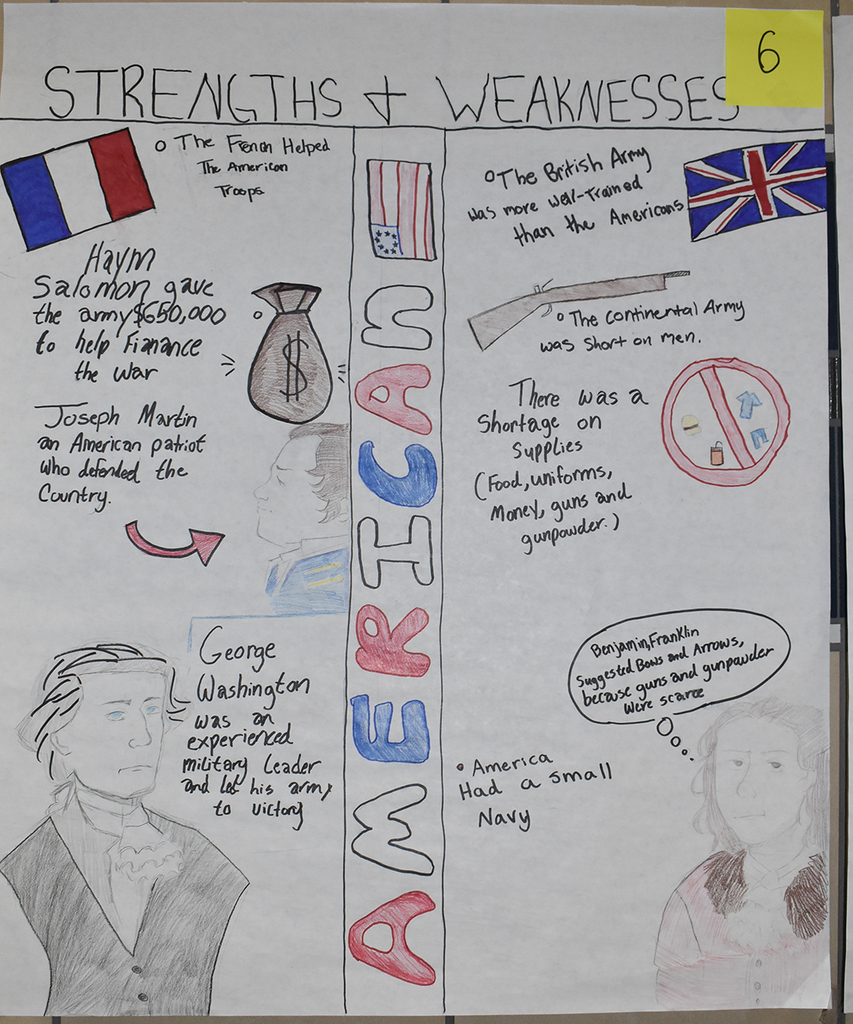 6
STRENGTHS & WEAKNESSES
The French Helped
The American
Troops
Haym
Salomon gave
the army $650,000
to help Fianance
the war
$
Joseph Martin
an American patriot
who defended the
Country.
George
Washington
was an
experienced
military Leader
and led his army
to victory
AMERICAN
The British Army
was more well-trained
than the Americans
The Continental Army
was short on men.
There was a
Shortage on
Supplies
(Food, uniforms,
Money, guns and
gunpowder.)
Benjamin, Franklin
Suggested Bows and Arrows,
because guns and gunpowder
were scarce
America
Had a small
Navy